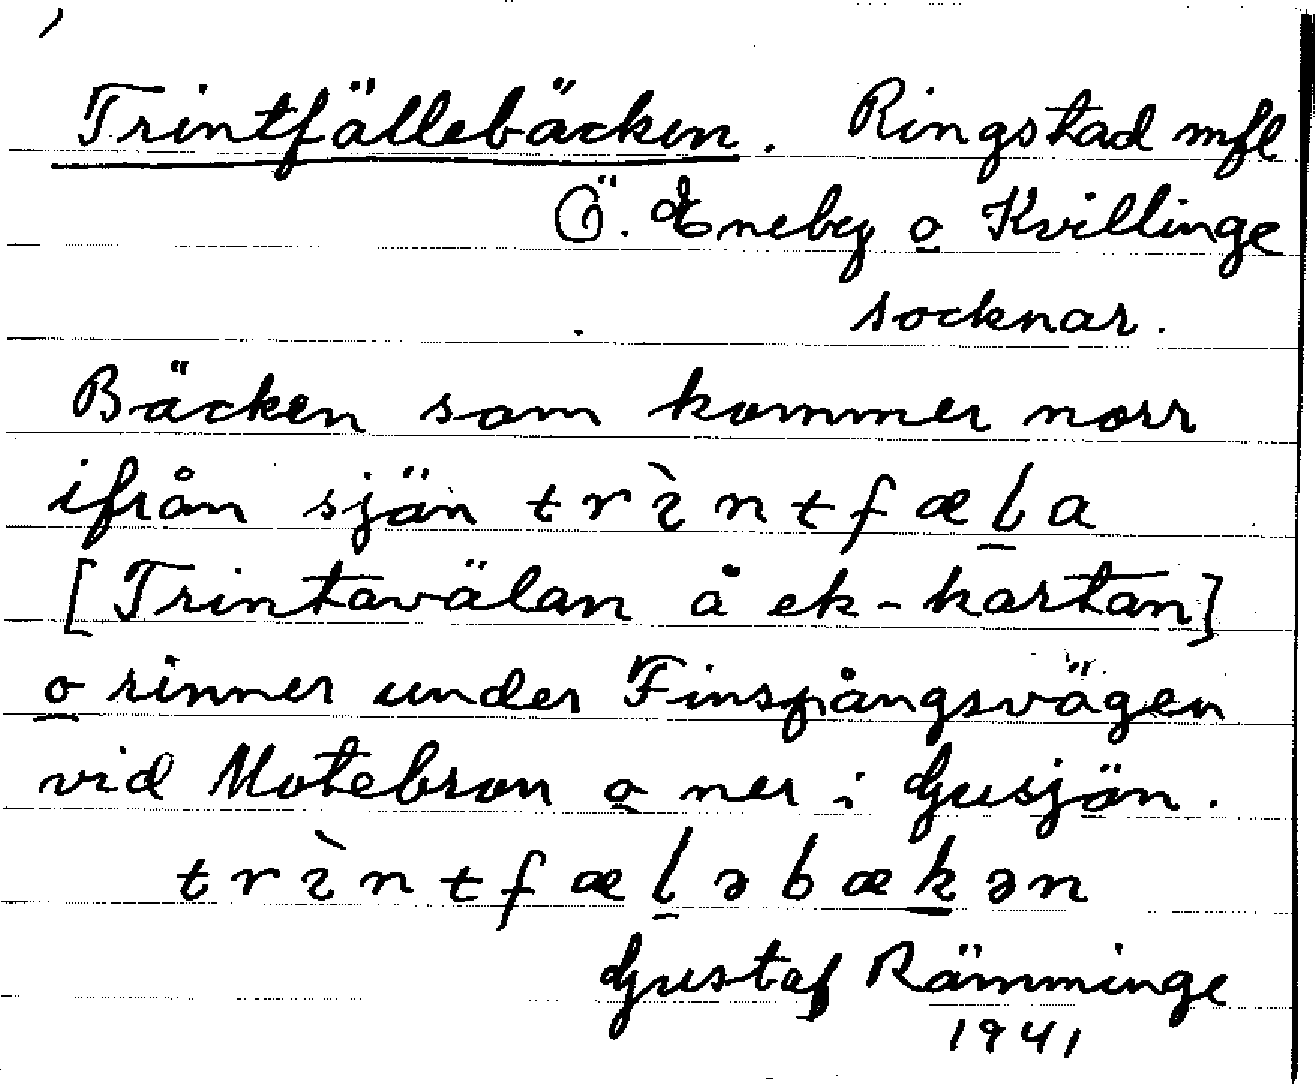 Trintfällebäcken. Ringstad mfl
Ö. Eneby o Kvillinge
socknar.
Bäcken som kommer norr
ifrån sjän trìntfæl̲a
[Trintavälan å ek-kartan]
o rinner under Finspångsvägen
vid Motebron o ner i Gusjän.
trìntfæl̲əbæk̲ən
Gustaf Rämminge
1941